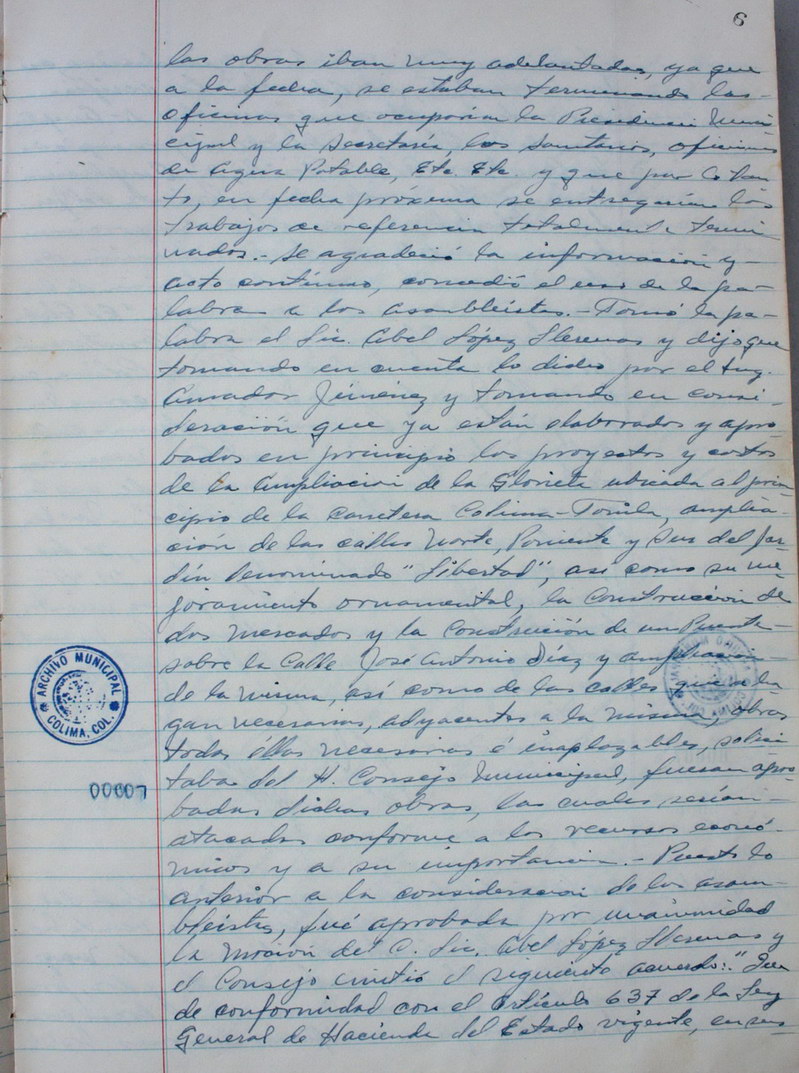 6
las obras iban muy adelantadas, ya que
a la fecha, se estaban terminando las
oficinas que ocuparían la Presidencia Muni
cipal y la Secretaría, los sanitarios, oficinas
de Agua Potable, Etc. Etc. y que por lo tan
to, en fecha próxima se entregarían los
trabajos de referencia totalmente termi
nados.- Se agradeció la información y
acto contínuo, concedió el uso de la pa-
labra a los asambleístas.- Tomó la pa-
labra el Lic. Abel López Llerenas y dijo que
tomando en cuenta lo dicho por el Ing.
Amador Jiménez y tomando en consi-
deración que ya están elaborados y apro
bados en principio los proyectos y costos
de la Ampliación de la Glorieta ubicada al prin
cipio de la carretera Colima-Tonila, amplia-
ción de las calles Norte, Poniente y Sur del Jar-
dín denominado "Libertad", así como su me
joramiento ornamental, la Construcción de
dos mercados y la Construcción de un Puente
sobre la Calle José Antonio Díaz y ampliación
de la misma, así como de las calles que se ha
gan necesarias, adyacentes a la misma, obras
todas éllas necesarias é inaplazables, solici
taba del H. Consejo Municipal, fuesen apro
badas dichas obras, las cuales serían
atacadas conforme a los recursos econó-
micos y a su importancia.- Puesto lo
anterior a la consideración de los asam-
bleístas, fué aprobada por unanimidad
la moción del C. Lic. Abel López Llerenas y
el Consejo emitió el siguiente acuerdo: "Que
de conformidad con el Artículo 637 de la Ley
General de Hacienda del Estado vigente, en sus
ARCHIVO MUNICIPAL
COLIMA, COL.
00007